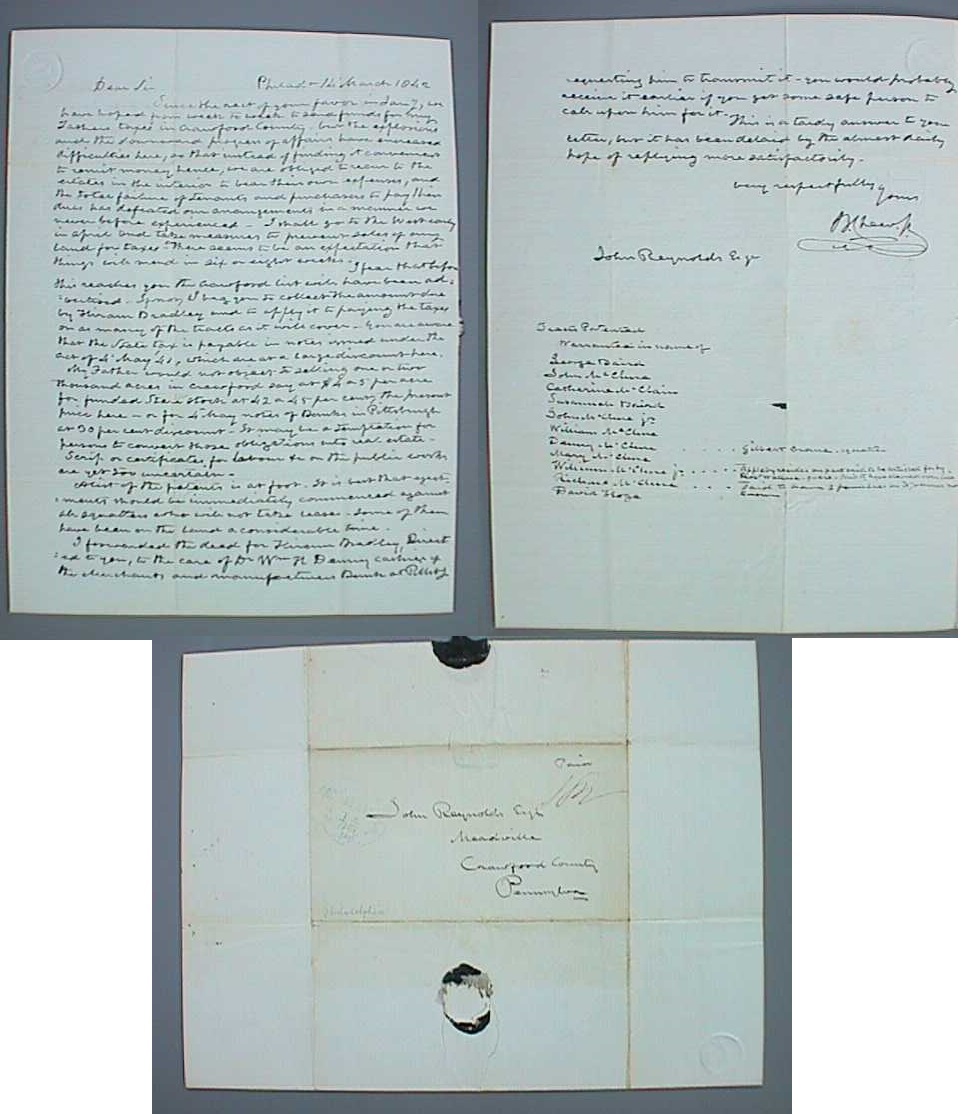 Dear Sir Philad. 14 March 1842
Since the rect of your favor in Jany, we
have hoped from week to week to send funds for my
Fathers taxes in Crawford County, but the explosions
and the downward progress of affairs have increased
difficulties here, so that instead of finding it convenient
to remit money hence, we are obliged to recur to the
estates in the interior to bear their own expenses, and
the total failure of tenants and purchasers to pay their
dues has defeated our arrangements in a manner we
never before experienced - I shall go to the West early
in april and take measures to prevent sales of any
land for taxes. There seems to be an expectation that
things will mend in six or eight weeks.
I fear that before
this reaches you the Crawford list will have been ad=
=vertised. If not, I beg you to collect the amount due
by Hiram Bradley and to apply it to paying the taxes
on as many of the tracts as it will cover - You are aware
that the State tax is payable in notes issued under the
act of 4 May 41, which are at a large discount here.
My Father would not object to selling one or two
thousand acres in Crawford say at $4 a 5 per acre
for funded State Stock at 42 a 45 per cent, the present
price here - or for 4 May notes of Banks in Pittsburgh
at 30 per cent discount - It may be a temptation for
persons to convert those obligations into real estate -
Scrip or certificates for labour &c on the public works
are yet too uncertain.
A list of the patents is at foot. It is best that eject=
=ments should be immediately commenced against
all squatters who will not take leases - Some of them
have been on the land a considerable time.
I forwarded the deed for Hiram Bradley, Direct
=ed to you, to the care of Dr Wm H Denny cashier of
the Merchants and manufacturers Bank at Pittsbg
requesting him to transmit it - you would probably
receive it earlier if you get some safe person to
call upon him for it.
This is a tardy answer to your
letter, but it has been delaid by the almost daily
hope of replying more satisfactorily.
very respectfully
Yours
B. Chew Jr
John Reynolds Esqr
Tracts Patented
Warrantee in name of
George Baird
John McClure
Catherine McClain
Susannah Baird
John McClure jr
William McClure
Denny McClure . . . . Gilbert Crane - squatter
Mary McClure
William McClure jr . . . .
Richard McClure . . . .
David Hope
Paid
John Reynolds Esqr
Meadville
Crawford County
Pennsylva
Philadelphia